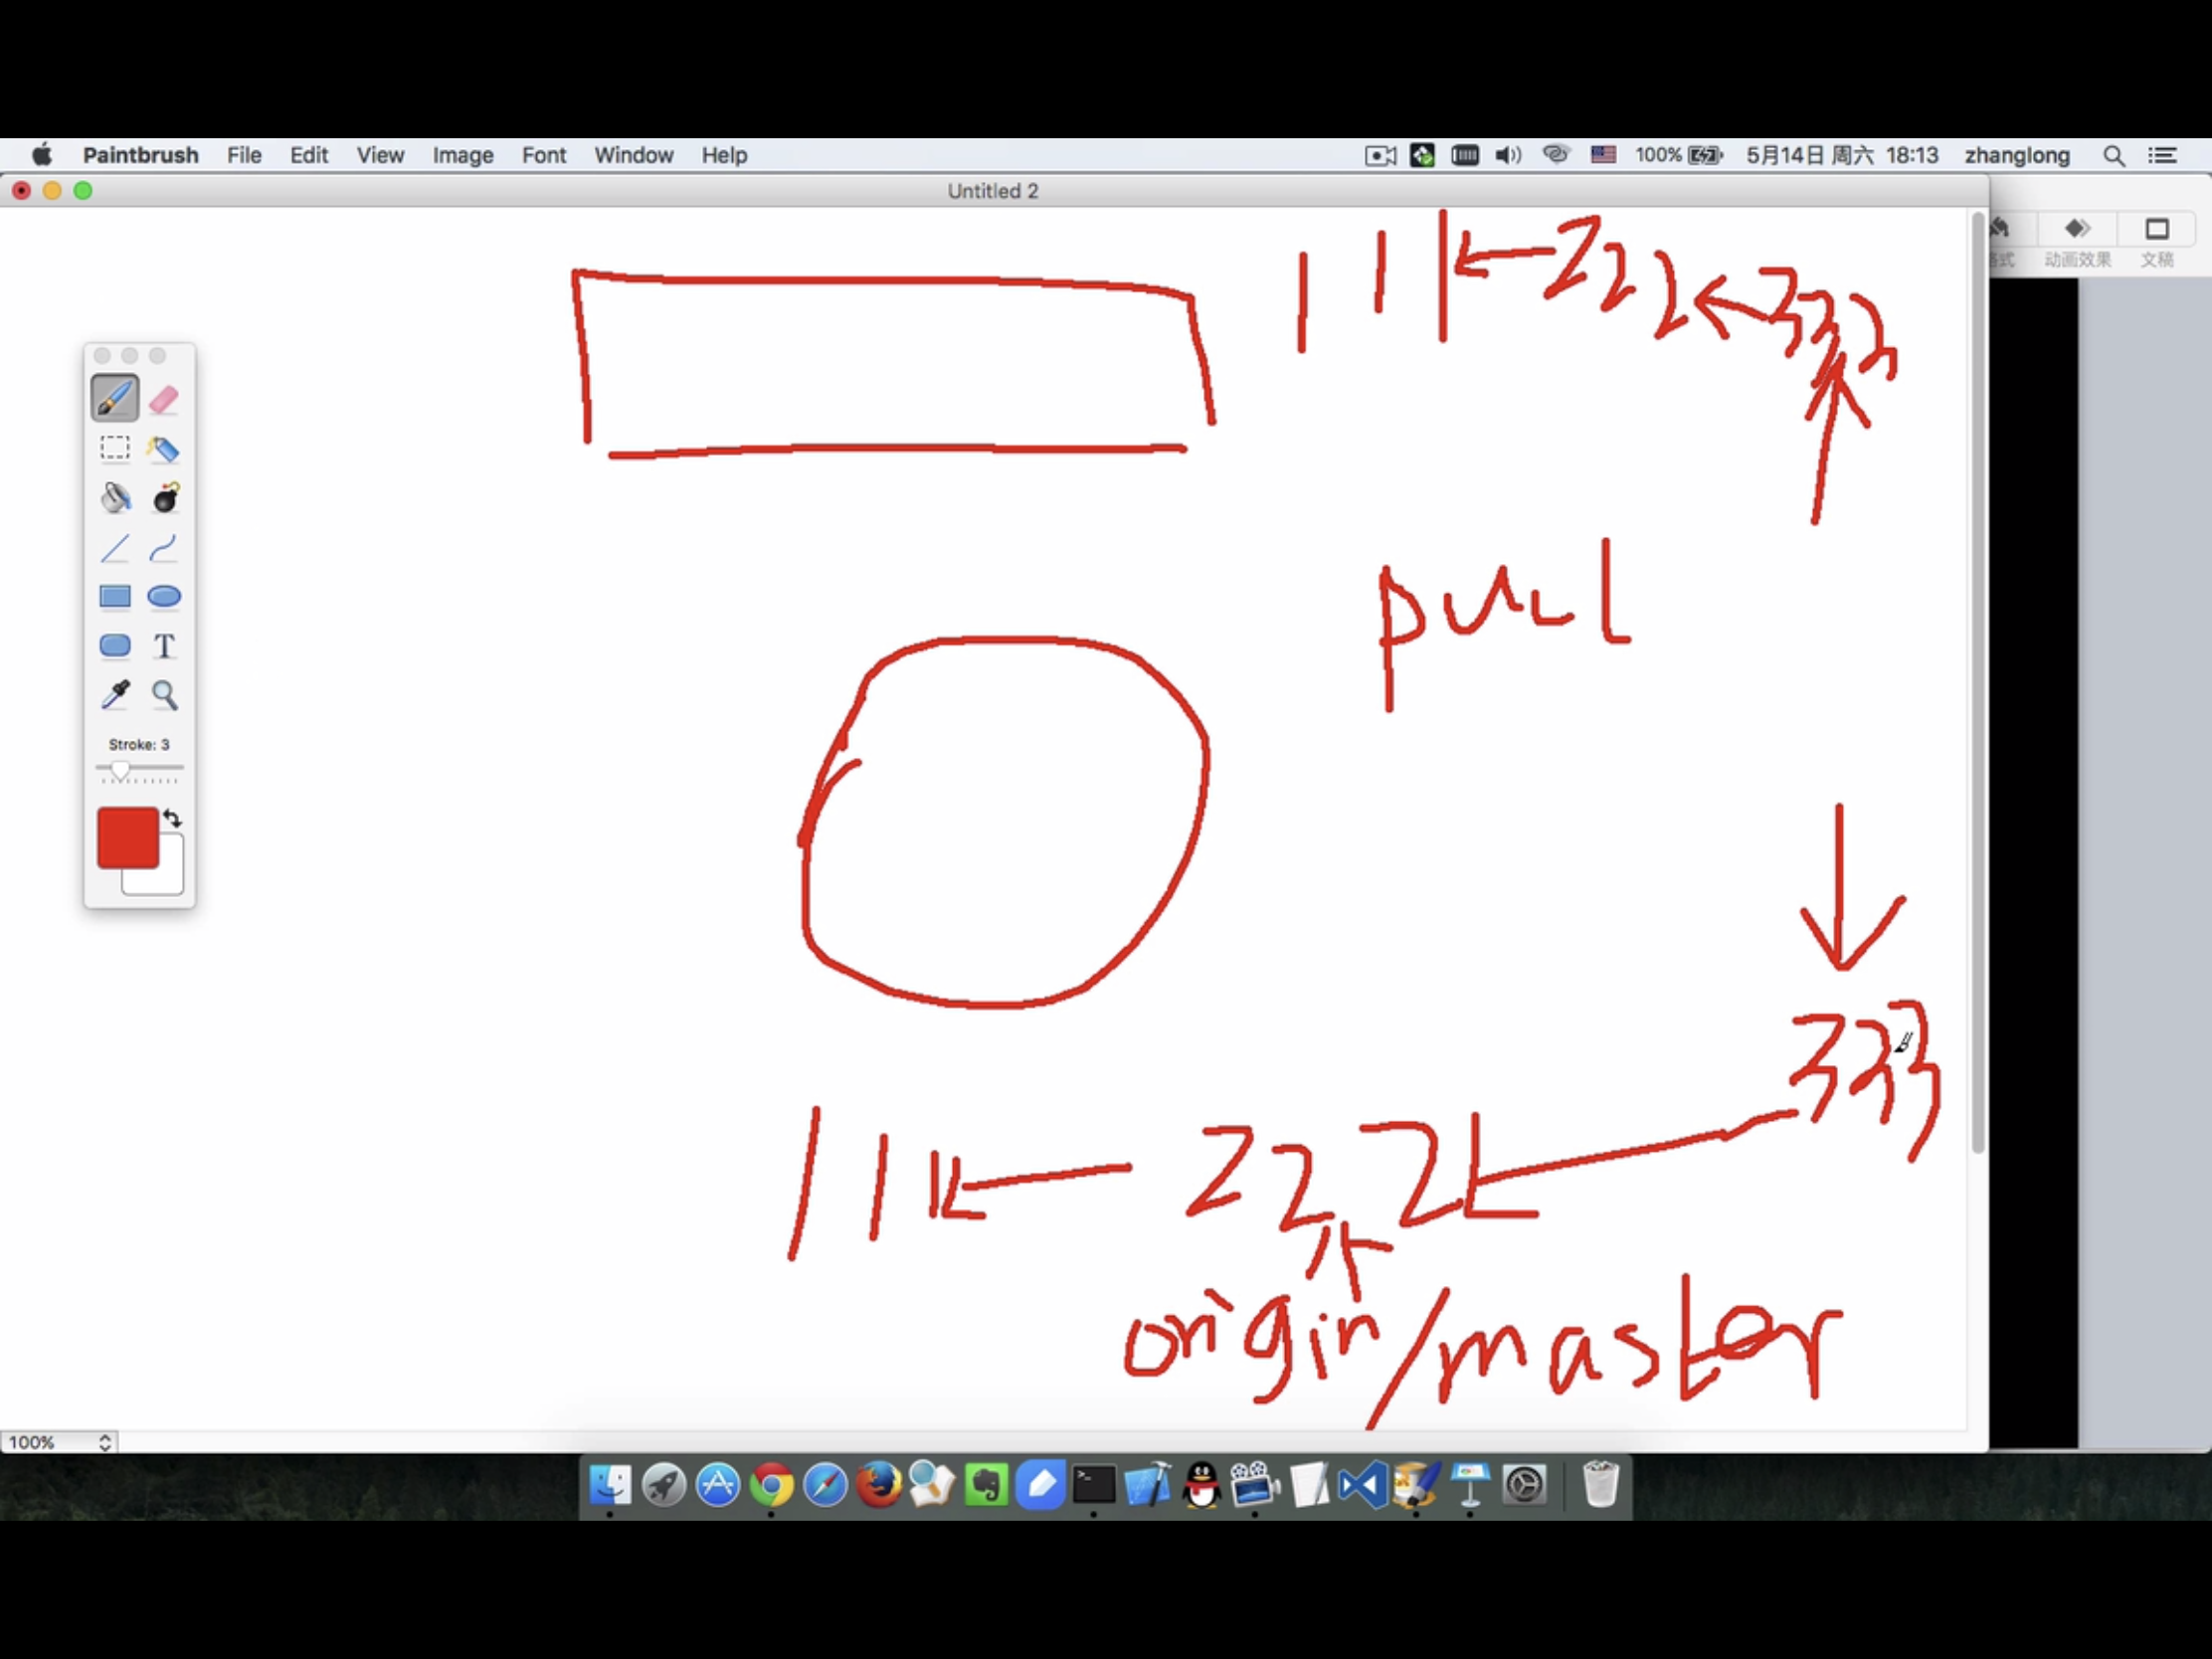 Paintbrush File Edit View Image Font Window Help 100% 5月14日 周六 18:13 zhanglong
Untitled 2
动画效果 文稿
111 222 333
pull
T
Stroke: 3
333
111 222
origin/master
100%